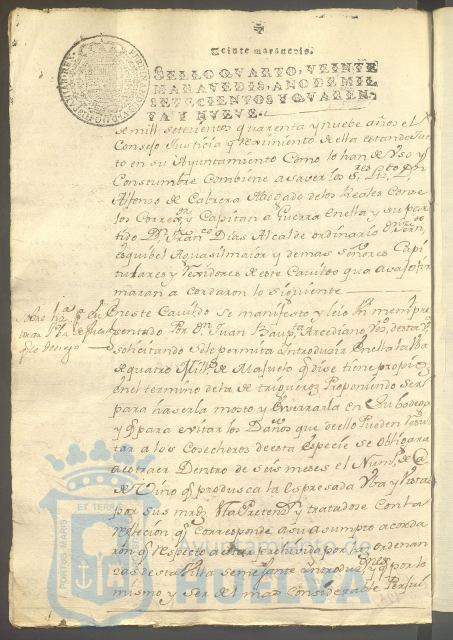 Veinte maravedis.
SELLO QVARTO, VEINTE
MARAVEDIS, AÑO DE MIL
SETECIENTOS Y QVAREN-
TA Y NVEVE.
de mil setezientos quarenta y nuebe años el
Consejo Justicia y rexximiento de ella estando Jun
to en su Ayuntamiento Como lo han de Vso y
Constumbre Combiene a saver los S.res Lz.do D.n
Alfonso de Cabrera Abogado de los Reales Conse
Jos Correg.or y Capitan a Guerra en ella y su par
tido D.n Fran.co Dias Alcalde ordinario
esquibel Aguasilmaior y demas señores Capi
tulares y Rexidores de este Cavildo que avajo fir
maran acordaron lo siguiente
En este Cavildo se manifesto y leio Vn memor
sentado Por D.n Juan Baup.ta Arcediano Vº de esta V.ª
solicitando se le permita introduzir en ella la Vba
de quatro Mill.s de Majuelo q dise tiene propios
en el termino de la de trigueros Proponiendo ser
para haserla mosto y enserrarla en su bodega
y q para evitar los Daños que de ello Pueden resul
tar a los Cosecheros de esta especie se obligara
a extraer Dentro de seis meses el Num.º de @
de Vino q produsca la espresada Vba y Vista
por sus mrds Vta Pretens.n y tratadose Con la
reflecion q Corresponde a su asumpto acorda
ron q respecto a estar Prohivida por las ordenan
zas de esta Villa semejante introduz.on y q por lo
mismo y ser de mas considerable Perjui
PORTUS MARIS
ET TERRAE
Ayuntamiento de
HUELVA